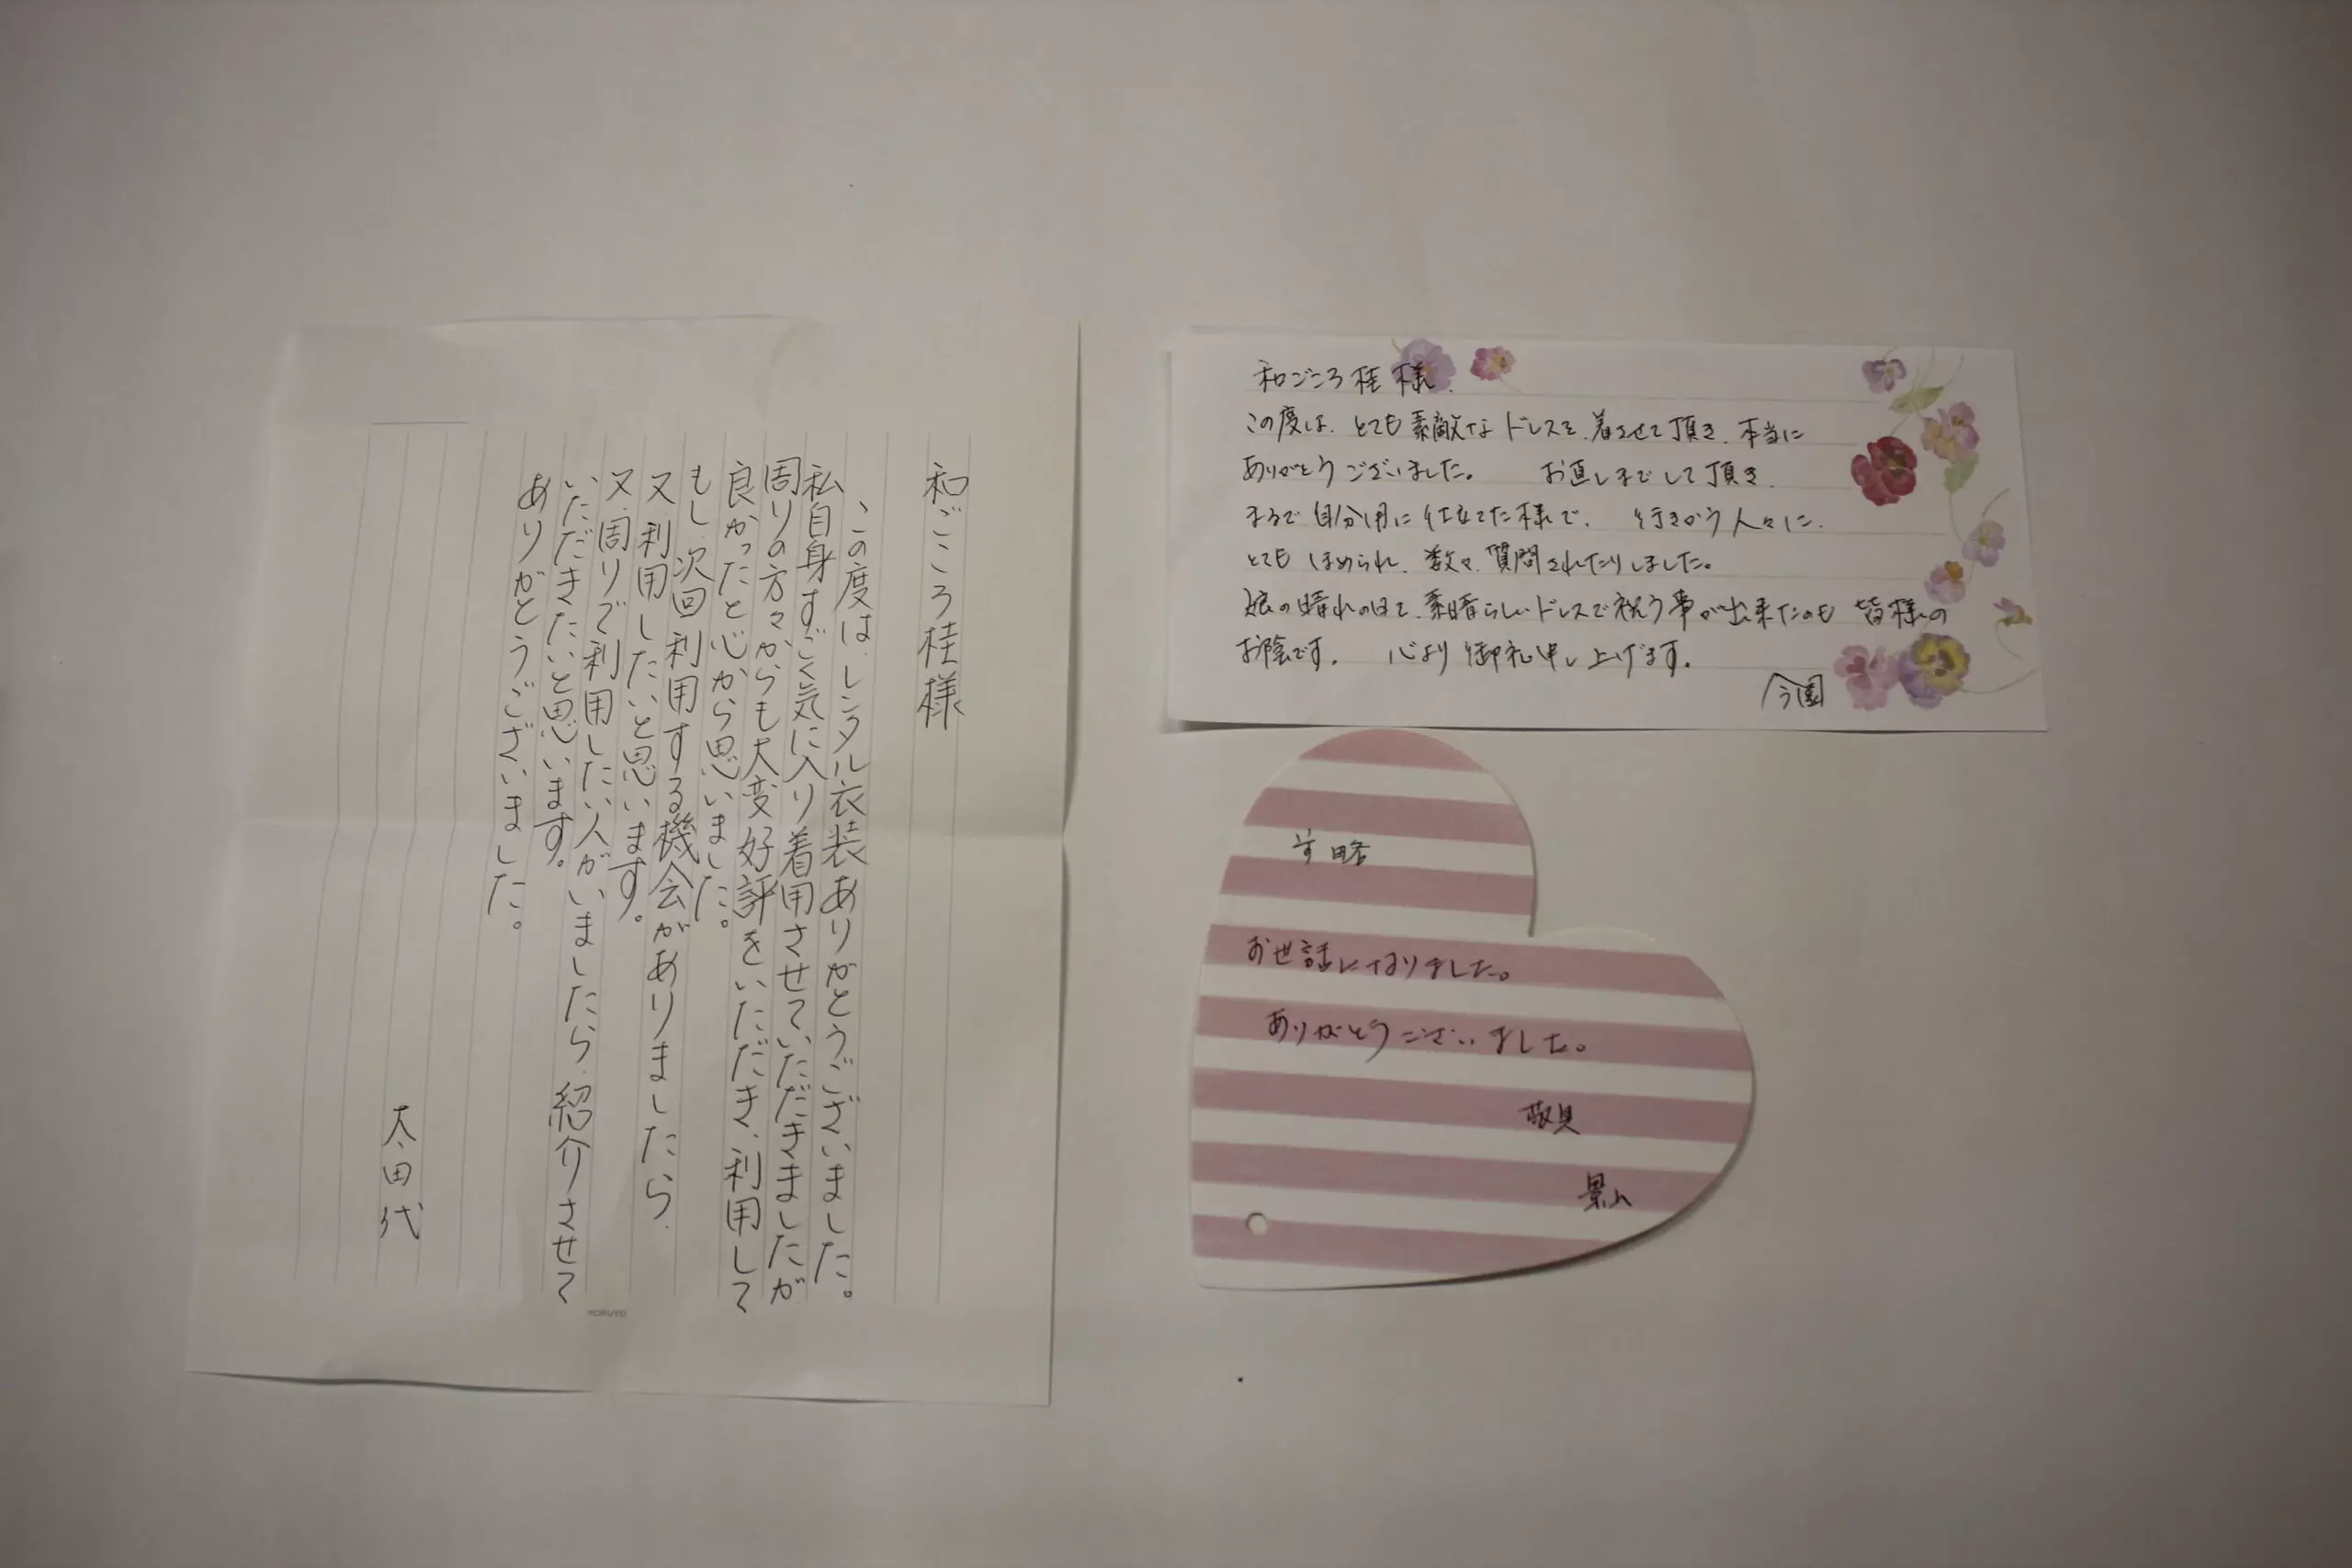 和ごころ桂様
この度は、レンタル衣装ありがとうございました。
私自身すごく気に入り着用させていただきましたが
周りの方々からも大変好評をいただき、利用して
良かったと心から思いました。
もし、次回利用する機会がありましたら、
又、利用したいと思います。
又、周りで利用したい人がいましたら、紹介させて
いただきたいと思います。
ありがとうございました。
太田代
KOKUYO
和ごころ桂様
この度は、とても素敵なドレスを、着させて頂き、本当に
ありがとうございました。 お直しまでして頂き、
まるで自分用に仕立てた様で、 行きかう人々に、
とてもほめられ、数々、質問されたりしました。
娘の晴れの日を、素晴らしいドレスで祝う事が出来たのも 皆様の
お陰です。 心より御礼申し上げます。
今園
前略
お世話になりました。
ありがとうございました。
敬具
景山